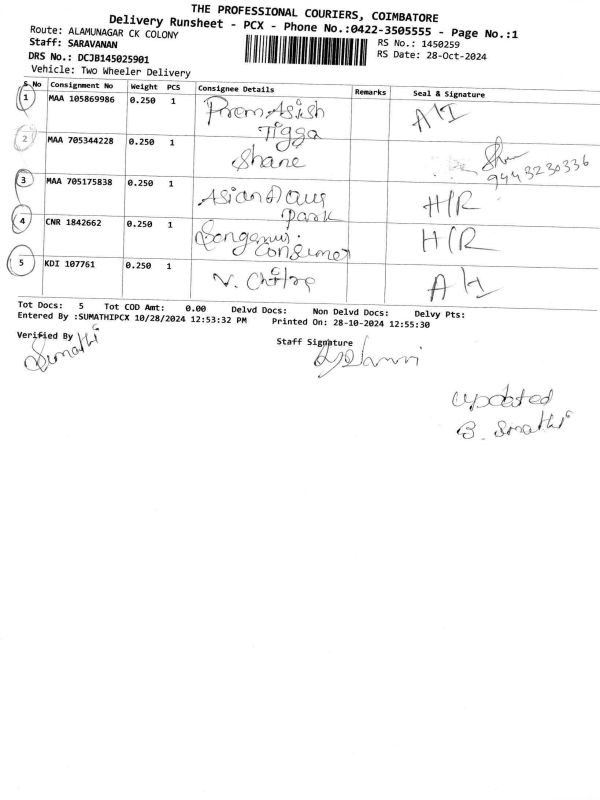 THE PROFESSIONAL COURIERS, COIMBATORE
Delivery Runsheet - PCX - Phone No.:0422-3505555 - Page No.:1
Route: ALAMUNAGAR CK COLONY
RS No.: 1450259
Staff: SARAVANAN
RS Date: 28-Oct-2024
DRS No.: DCJB145025901
Vehicle: Two Wheeler Delivery
S No Consignment No Weight PCS Consignee Details Remarks Seal & Signature
1 MAA 105869986 0.250 1 Prem Asish
Tigga
2 MAA 705344228 0.250 1 Shane
9443230336
3 MAA 705175838 0.250 1 Asian
Park H/R
4 CNR 1842662 0.250 1 H/R
Consumer
5 KDI 107761 0.250 1 V.
Tot Docs: 5 Tot COD Amt: 0.00 Delvd Docs: Non Delvd Docs: Delvy Pts:
Entered By :SUMATHIPCX 10/28/2024 12:53:32 PM Printed On: 28-10-2024 12:55:30
Verified By Staff Signature
Sumathi
updated
B. Smathi